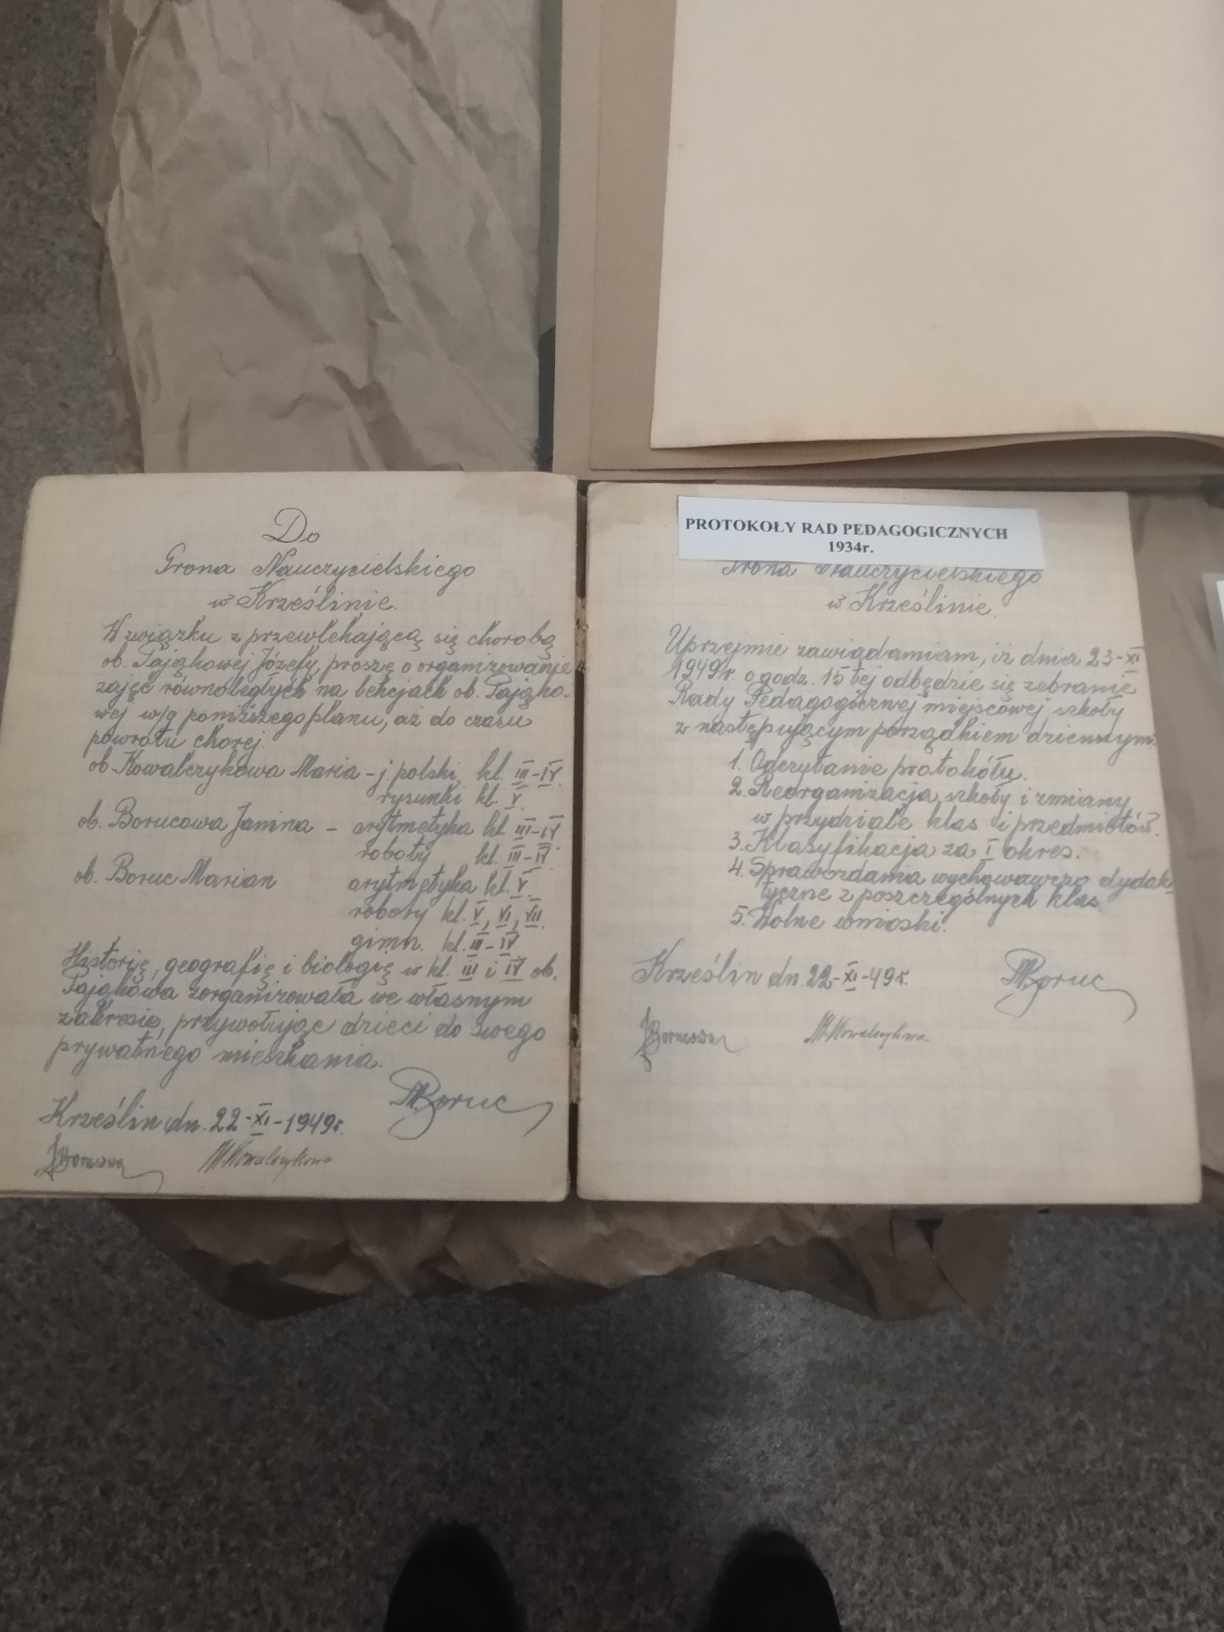 Do
Grona Nauczycielskiego
w Krześlinie.
W związku z przewlekającą się chorobą
ob. Pająkowej Józefy, proszę o organizowanie
zajęć równoległych na lekcjach ob. Pająko-
wej w/g poniższego planu, aż do czasu
powrotu chorej.
ob. Kowalczykowa Maria - j. polski, kl. III-IV.
rysunki kl. V.
ob. Borucowa Janina - arytmetyka kl. III-IV
roboty kl. III-IV.
ob. Boruc Marian arytmetyka kl. V.
roboty kl. V, VI, VII.
gimn. kl. III-IV
Historię, geografię i biologię w kl. III i IV ob.
Pająkowa zorganizowała we własnym
zakresie, przywołując dzieci do swego
prywatnego mieszkania.
MBoruc
Krześlin dn. 22-XI-1949r.
JBorucowa MKowalczykowa
PROTOKOŁY RAD PEDAGOGICZNYCH
1934r.
Grona Nauczycielskiego
w Krześlinie
Uprzejmie zawiadamiam, iż dnia 23-XI
1949r. o godz. 15tej odbędzie się zebranie
Rady Pedagogicznej miejscowej szkoły
z następującym porządkiem dziennym:
1. Odczytanie protokółu.
2. Reorganizacja szkoły i zmiany
w przydziale klas i przedmiotów.
3. Klasyfikacja za I okres.
4. Sprawozdania wychowawczo dydak
tyczne z poszczególnych klas.
5. Wolne wnioski.
Krześlin dn. 22-XI-49r. MBoruc
JBorucowa MKowalczykowa